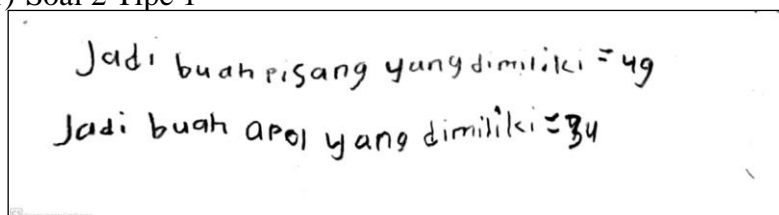 Jadi buah pisang yang dimiliki = 49
Jadi buah apol yang dimiliki = 34